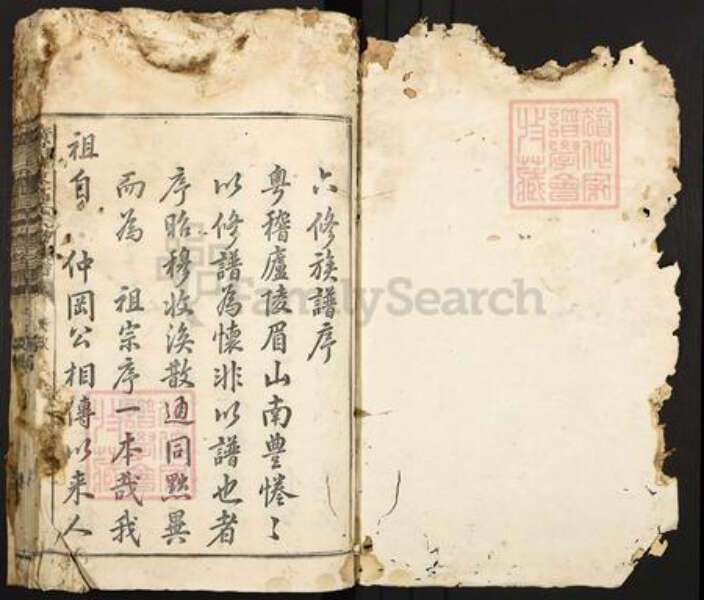 六修族譜序
粵稽廬陵眉山南豊惓〻
以修譜為懷非以譜也者
序昭穆收渙散通同點異
而為 祖宗序一本哉我
祖自 仲岡公相傳以来人
FamilySearch